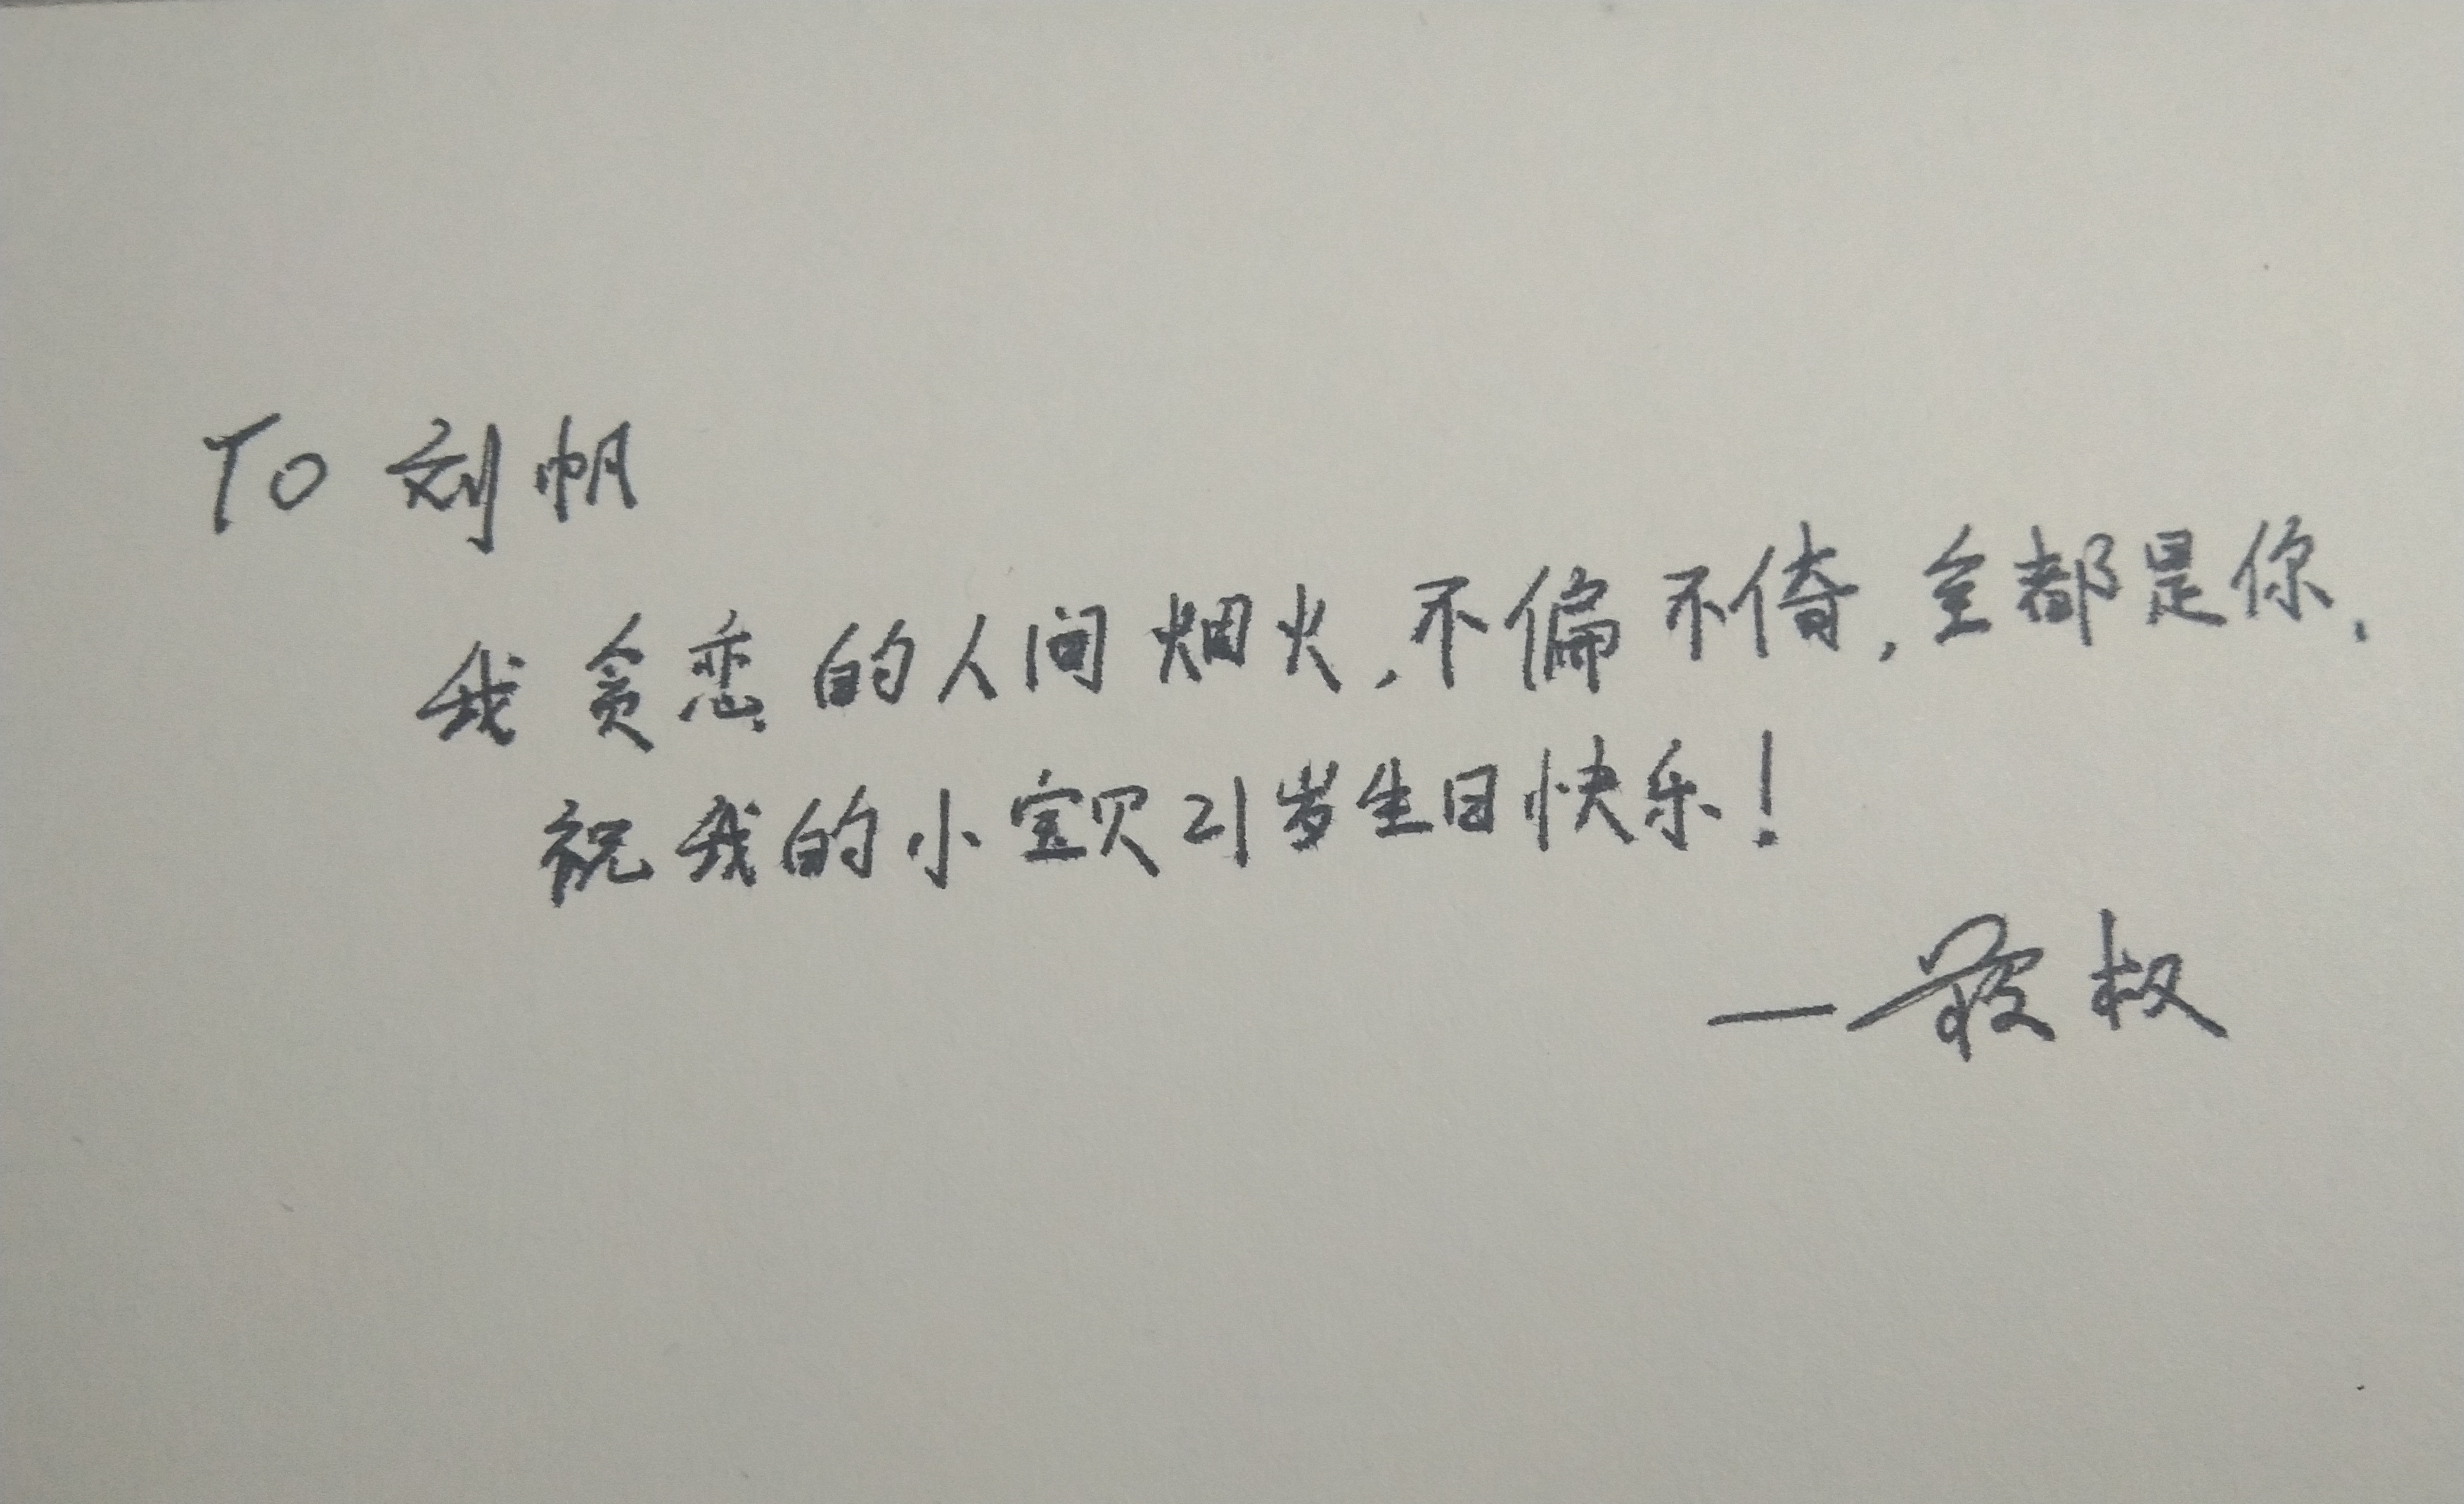 To 刘帆
我贪恋的人间烟火,不偏不倚,全都是你,
祝我的小宝贝21岁生日快乐!
—